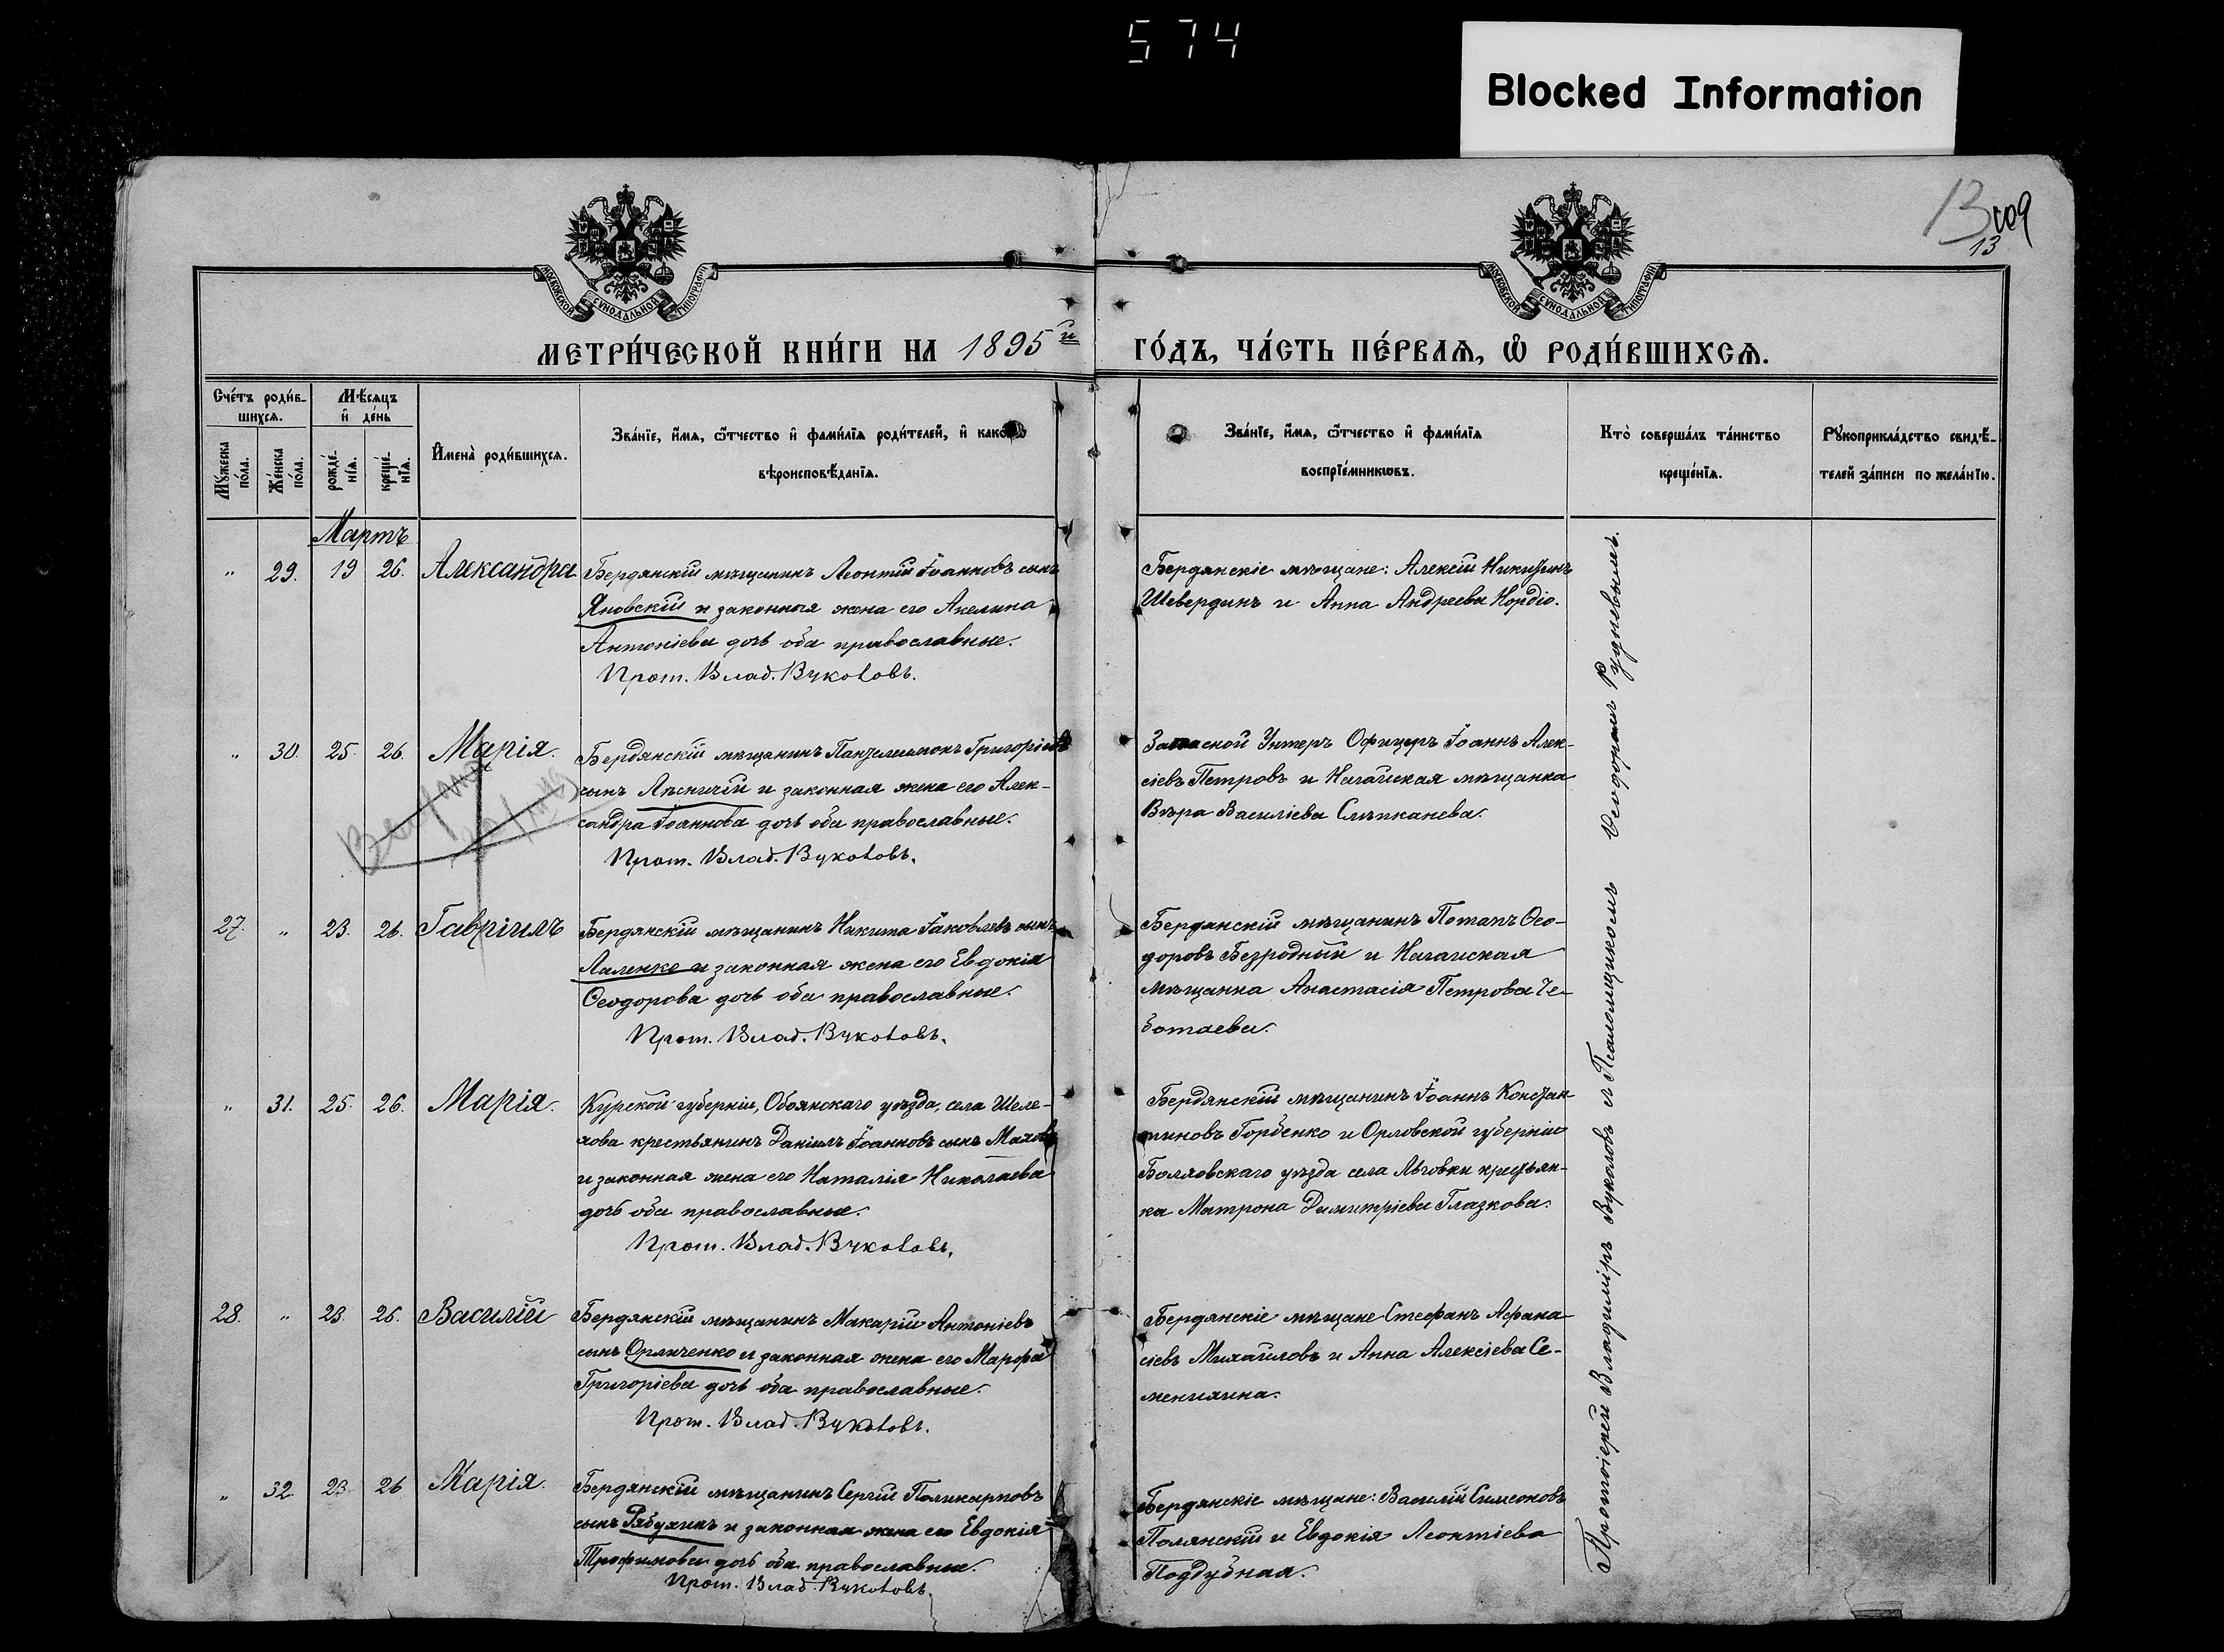 574
Blocked Information
13
109
13
МОСКОВСКОЙ СѴНОДАЛЬНОЙ ТИПОГРАФІИ
МОСКОВСКОЙ СѴНОДАЛЬНОЙ ТИПОГРАФІИ
МЕТРИ́ЧЕСКОЙ КНИ́ГИ НА 1895й ГО́ДЪ, ЧА́СТЬ ПЕ́РВАЯ, Ѡ҆ РОДИ́ВШИХСЯ.
Сче́тъ роди́в-
шихся.
Мѣ́сяцъ
и҆ де́нь
Мꙋ́жеска
по́ла.
Же́нска
по́ла.
рожде́-
нїя.
креще́-
нїя.
И҆мена̀ роди́вшихся.
Зва́нїе, и҆́мя, ѻ҆́тчество и҆ фами́лїя роди́телей, и҆ какогѡ
вѣроисповѣ́данїя.
Зва́нїе, и҆́мя, ѻ҆́тчество и҆ фами́лїя
воспрїе́мникѡвъ.
Кто̀ соверша́лъ та́инство
креще́нїя.
Рꙋкоприкла́дство свидѣ́-
телей за́писи по жела́нїю.
Мартъ
" 29. 19 26. Александра
Бердянскій мѣщанинъ Леонтій Іоанновъ сынъ
Яновскій и законная жена его Акелина
Антоніева дочь оба православные.
Прот. Влад. Вуколовъ.
Бердянскіе мѣщане: Алексій Никитинъ
Шевердинъ и Анна Андреева Нордіо.
" 30. 25. 26. Марія.
Бердянскій мѣщанинъ Пантелеимонъ Григоріевъ
сынъ Лѣсничій и законная жена его Алек-
сандра Іоаннова дочь оба православные.
Прот. Влад. Вуколовъ.
Запасной Унтеръ Офицеръ Іоаннъ Алек-
сіевъ Петровъ и Ногайская мѣщанка
Вѣра Василіева Слѣпканева.
27. " 23. 26. Гавріилъ
Бердянскій мѣщанинъ Никита Іаковлевъ сынъ
Лаленко и законная жена его Евдокія
Ѳеодорова дочь оба православные.
Прот. Влад. Вуколовъ.
Бердянскій мѣщанинъ Потапъ Ѳео-
доровъ Безродный и Ногайская
мѣщанка Анастасія Петрова Че-
ботаева.
" 31. 25. 26. Марія.
Курской губерніи, Обоянскаго уѣзда, села Шеле-
хова крестьянинъ Даніилъ Іоанновъ сынъ Маховъ
и законная жена его Наталія Николаева
дочь оба православные.
Прот. Влад. Вуколовъ.
Бердянскій мѣщанинъ Іоаннъ Констан-
тиновъ Горбенко и Орловской губерніи
Болховскаго уѣзда села Льговки крестьян-
ка Матрона Димитріева Глазкова.
28. " 23. 26. Василій
Бердянскій мѣщанинъ Макарій Антоніевъ
сынъ Орличенко и законная жена его Марѳа
Григоріева дочь оба православные.
Прот. Влад. Вуколовъ.
Бердянскіе мѣщане Стефанъ Афана-
сіевъ Михайловъ и Анна Алексіева Се-
менихина.
" 32. 23 26 Марія.
Бердянскій мѣщанинъ Сергій Поликарповъ
сынъ Рябухинъ и законная жена его Евдокія
Трофимова дочь оба православные.
Прот. Влад. Вуколовъ.
Бердянскіе мѣщане: Василій Симеоновъ
Полянскій и Евдокія Леонтіева
Поддубная.
Протоіерей Владиміръ Вуколовъ съ Псаломщикомъ Ѳеодоромъ Рудневымъ.